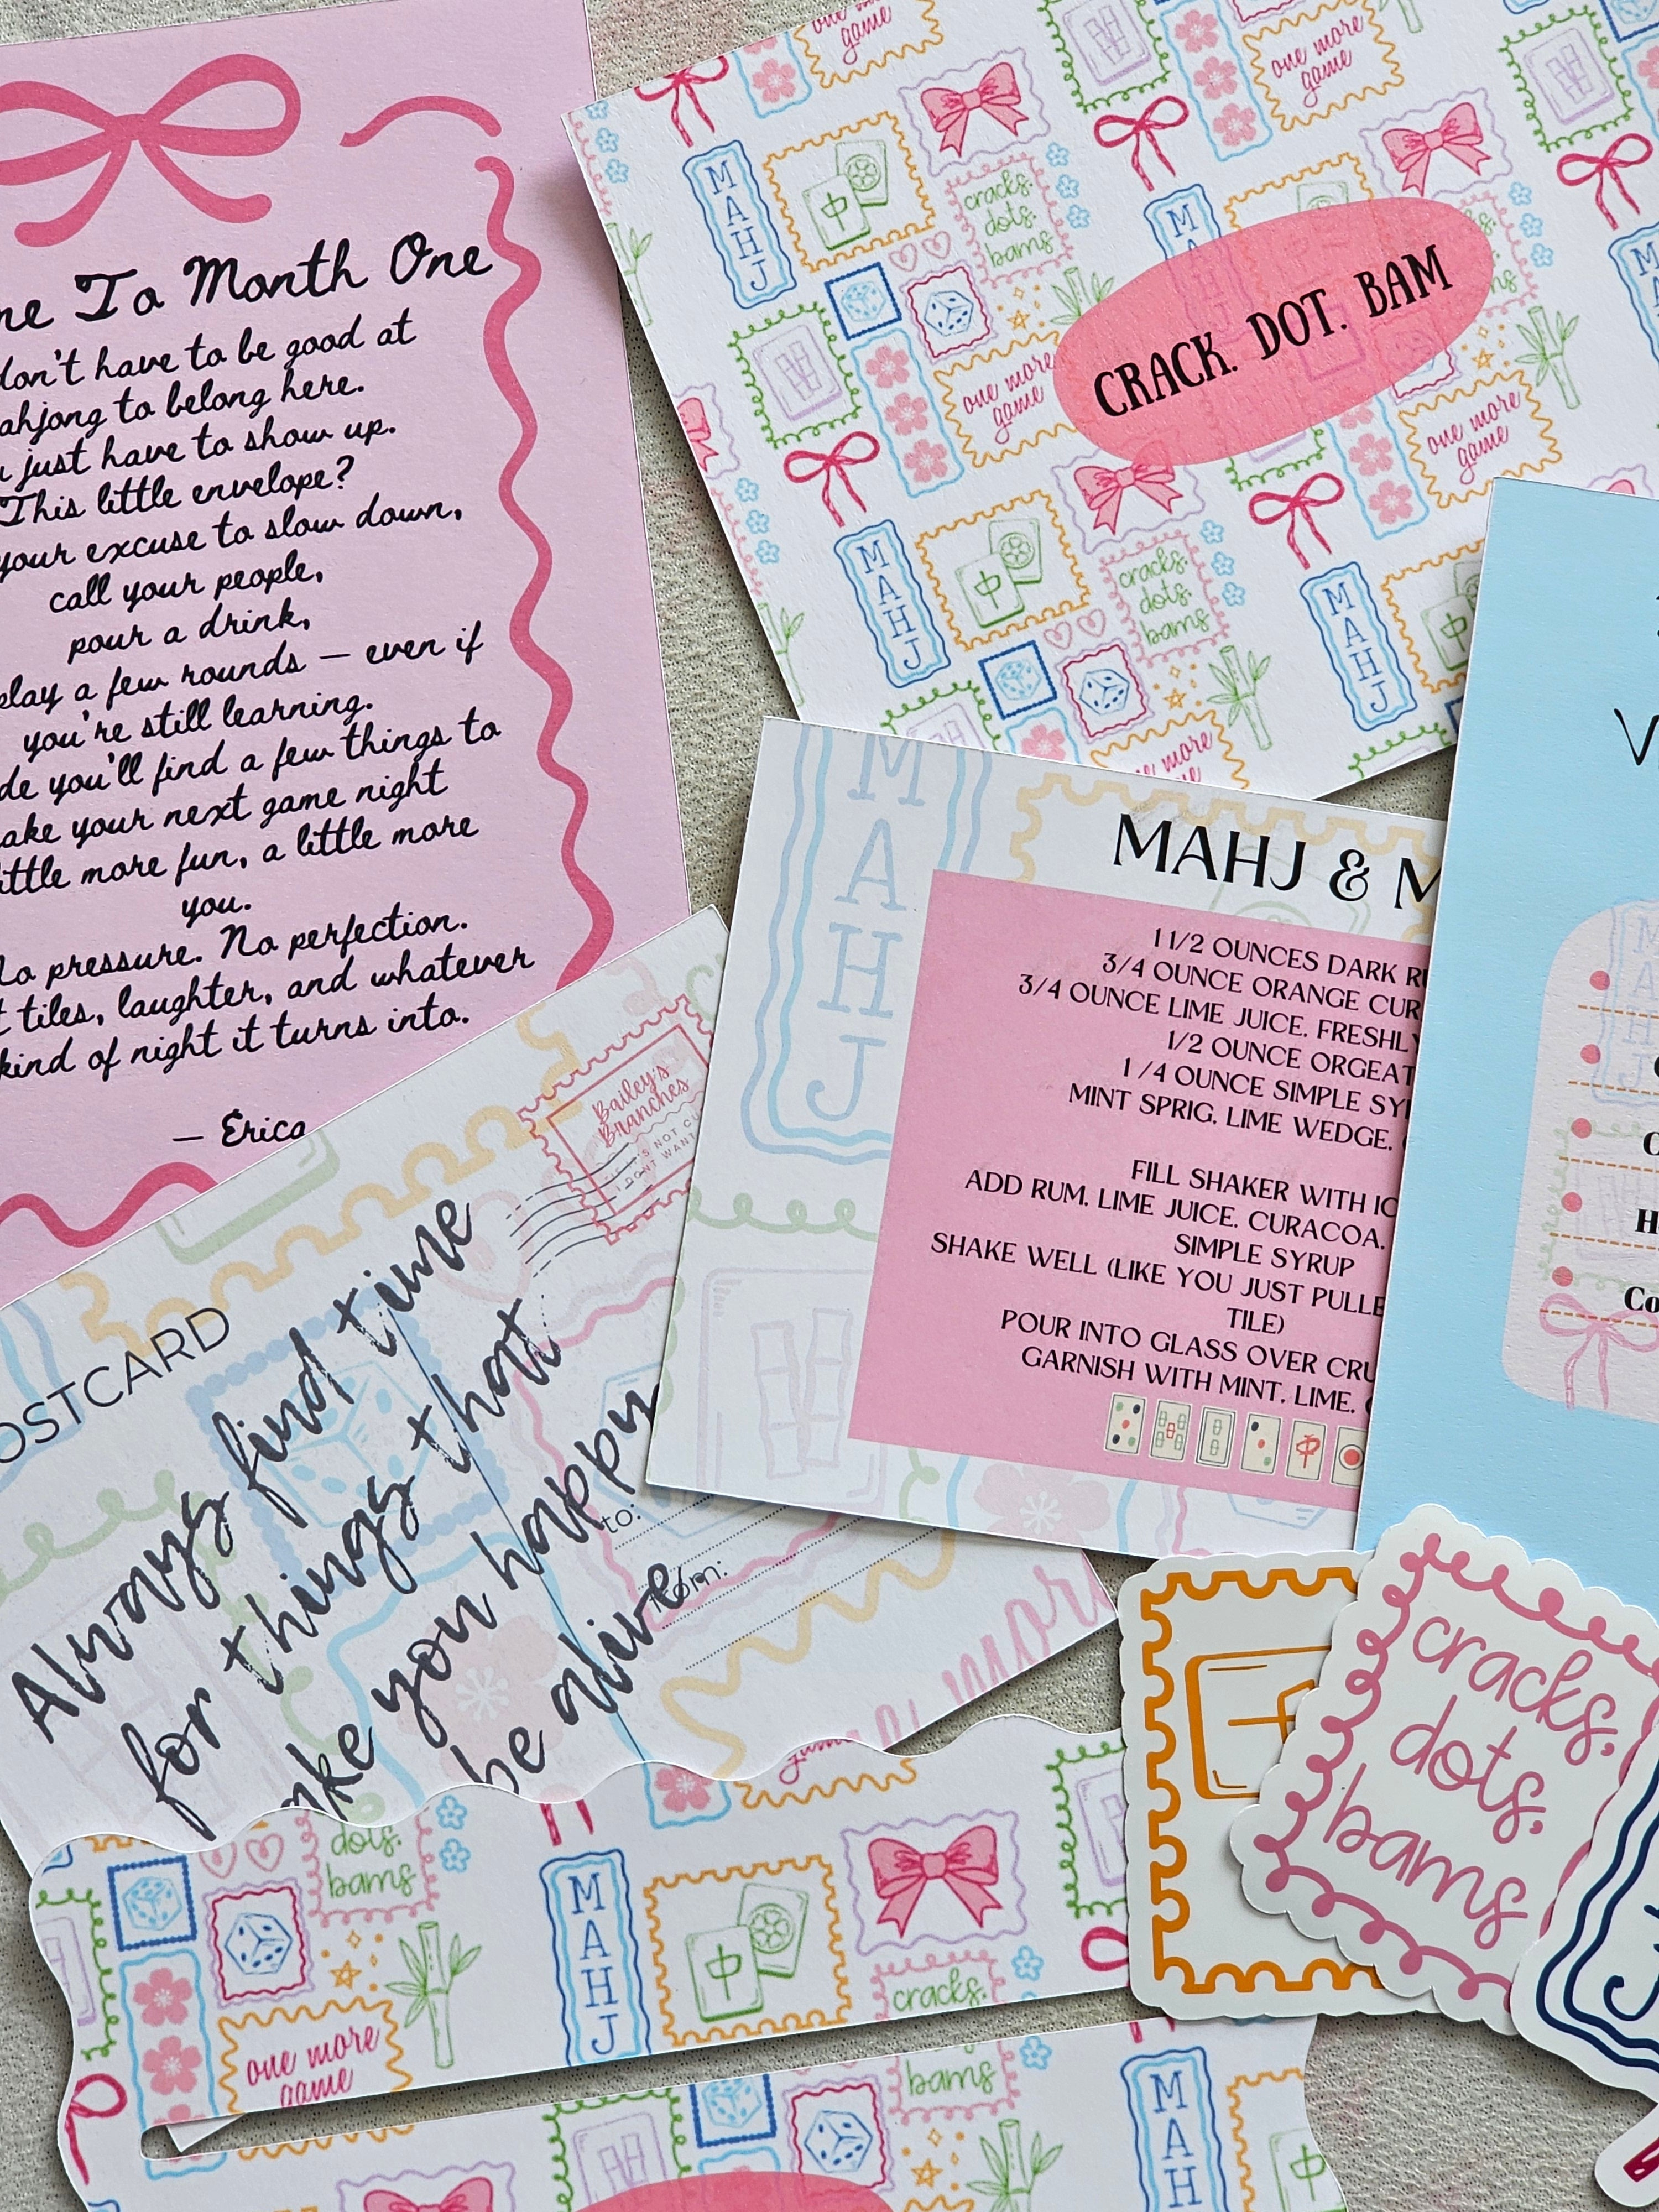 To Month One
don't have to be good at
to belong here.
just have to show up.
This little envelope?
your excuse to slow down,
call your people,
pour a drink,
play a few rounds — even if
you're still learning.
you'll find a few things to
your next game night
little more fun, a little more
you.
pressure. No perfection.
tiles, laughter, and whatever
kind of night it turns into.
— Erica
one more
game
one more
game
MAHJ
cracks.
dots.
bams
CRACK. DOT. BAM
one more
game
one more
game
MAHJ
cracks.
dots.
bams
MAHJ
MAHJ
MAHJ &
1 1/2 OUNCES DARK
3/4 OUNCE ORANGE
3/4 OUNCE LIME JUICE, FRESHLY
1/2 OUNCE ORGEAT
1/4 OUNCE SIMPLE
MINT SPRIG, LIME WEDGE,
FILL SHAKER WITH
ADD RUM, LIME JUICE, CURACOA,
SIMPLE SYRUP
SHAKE WELL (LIKE YOU JUST
TILE)
POUR INTO GLASS OVER
GARNISH WITH MINT, LIME,
Bailey's
Branches
Always find time
for things that
you happy
be alive
to:
cracks,
dots,
bams
dots.
bams
MAHJ
中
cracks.
one more
game
bams
MAHJ